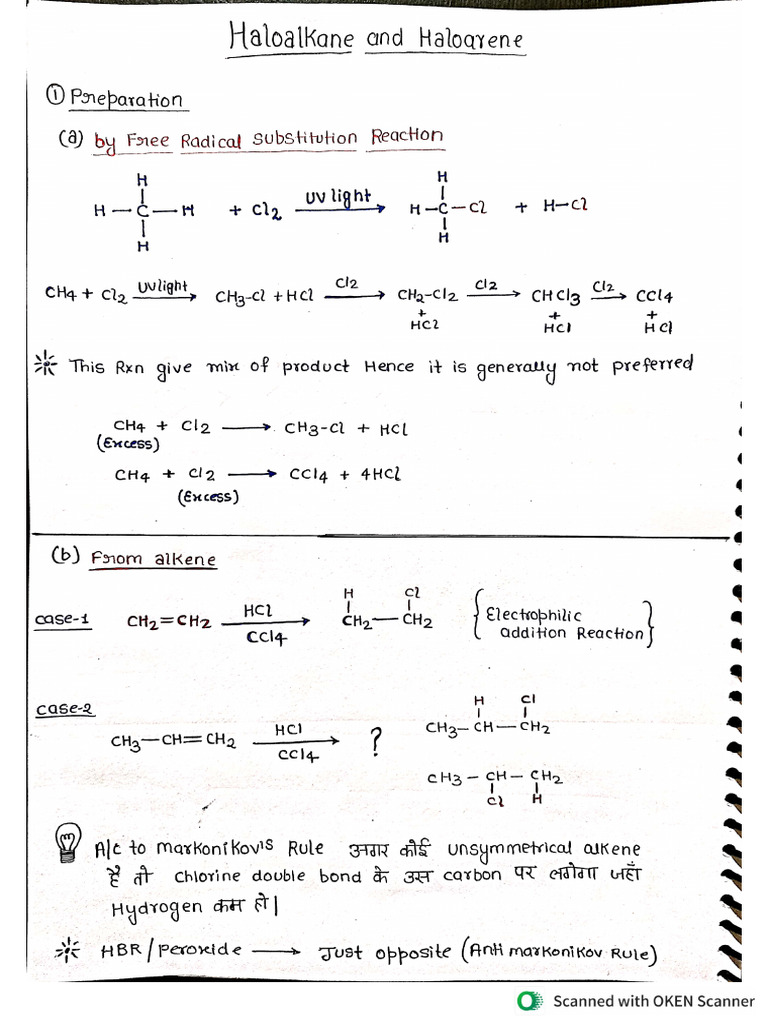 Haloalkane and Haloarene
① Preparation
(a) by Free Radical Substitution Reaction
H H
H — C — H + Cl2 UV light → H — C — Cl + H—Cl
H H
CH4 + Cl2 UV light → CH3-Cl + HCl Cl2 → CH2-Cl2 Cl2 → CHCl3 Cl2 → CCl4
+ + +
HCl HCl HCl
This Rxn give mix of product Hence it is generally not preferred
CH4 + Cl2 → CH3-Cl + HCl
(Excess)
CH4 + Cl2 → CCl4 + 4HCl
(Excess)
(b) From alkene
case-1 CH2=CH2 HCl → CCl4 H Cl
CH2—CH2 {Electrophilic
addition Reaction}
case-2
CH3—CH=CH2 HCl → CCl4 ?
H Cl
CH3—CH—CH2
CH3—CH—CH2
Cl H
A/c to markonikov's Rule अगर कोई unsymmetrical alkene
है तो chlorine double bond के उस carbon पर लगेगा जहाँ
Hydrogen कम हो|
HBR/peroxide → Just opposite (Anti markonikov Rule)
Scanned with OKEN Scanner